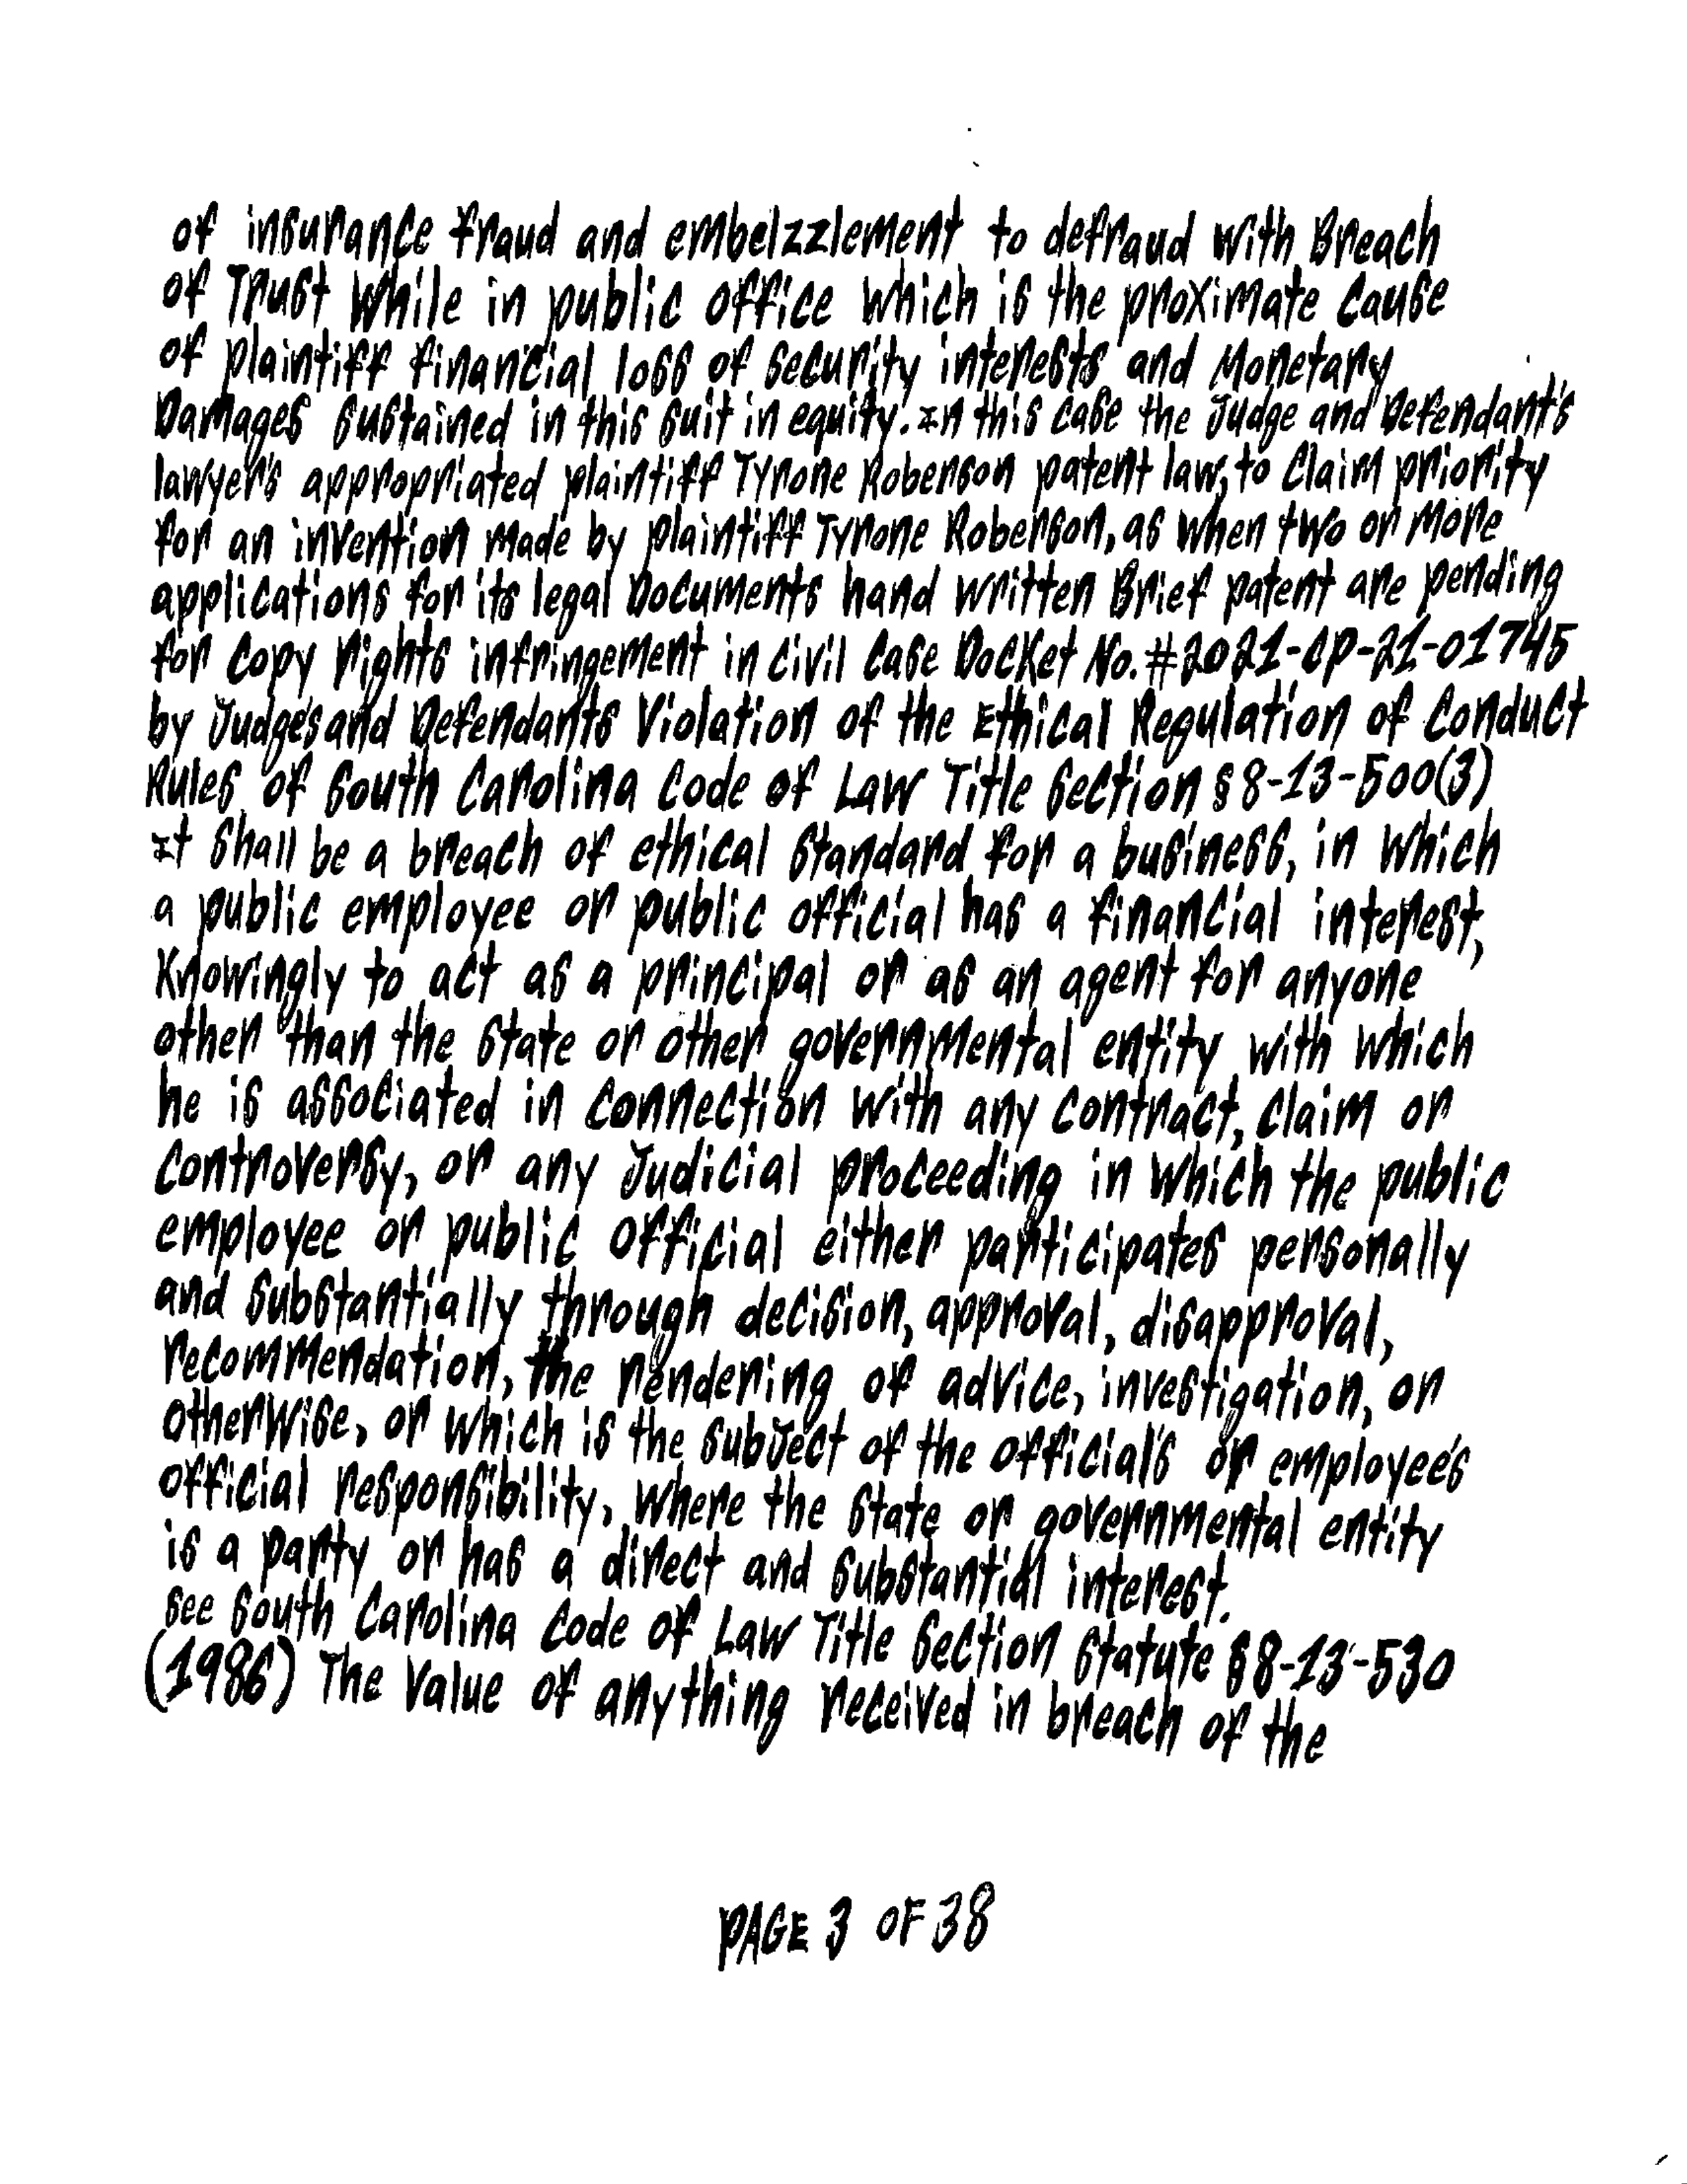 of insurance fraud and embelzzlement to defraud with Breach
of Trust while in public office which is the proximate cause
of plaintiff financial loss of security interests and Monetary
Damages sustained in this suit in equity. In this case the Judge and Defendant's
lawyer's appropriated plaintiff Tyrone Roberson patent law, to claim priority
for an invention made by plaintiff Tyrone Roberson, as when two or more
applications for its legal Documents hand written Brief patent are pending
for copy rights infringement in civil case Docket No. #2021-cp-21-01745
by Judge's and Defendants Violation of the Ethical Regulation of Conduct
Rules of South Carolina Code of Law Title Section § 8-13-500(3)
It shall be a breach of ethical standard for a business, in which
a public employee or public official has a financial interest,
Knowingly to act as a principal or as an agent for anyone
other than the State or other governmental entity with which
he is associated in connection with any contract, claim or
controversy, or any Judicial proceeding in which the public
employee or public official either participates personally
and substantially through decision, approval, disapproval,
recommendation, the rendering of advice, investigation, or
otherwise, or which is the subject of the official's or employee's
official responsibility, where the State or governmental entity
is a party or has a direct and substantial interest.
see South Carolina Code of Law Title Section Statute §8-13-530
(1986) The Value of anything received in breach of the
PAGE 3 OF 38